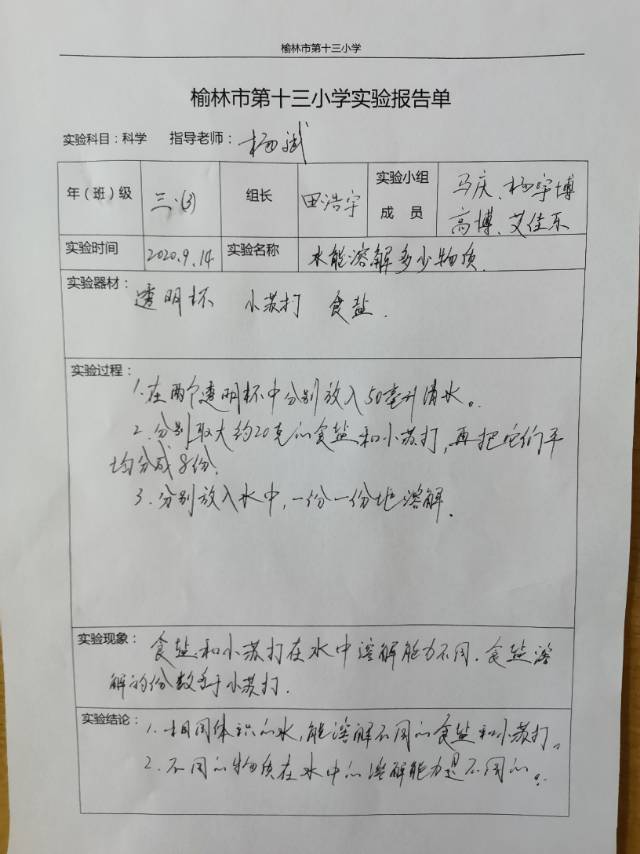 榆林市第十三小学
榆林市第十三小学实验报告单
实验科目：科学 指导老师：杨斌
年（班）级 三.(3) 组长 田浩宇 实验小组成员 马庆、杨宇博
高博、艾佳乐
实验时间 2020.9.14 实验名称 水能溶解多少物质.
实验器材：透明杯 小苏打 食盐.
实验过程：
1.在两个透明杯中分别放入50毫升清水。
2.分别取大约20克的食盐和小苏打，再把它们平
均分成8份.
3.分别放入水中，一份一份地溶解.
实验现象：食盐和小苏打在水中溶解能力不同.食盐溶
解的份数多于小苏打.
实验结论：1.相同体积的水，能溶解不同的食盐和小苏打。
2.不同的物质在水中的溶解能力是不同的。